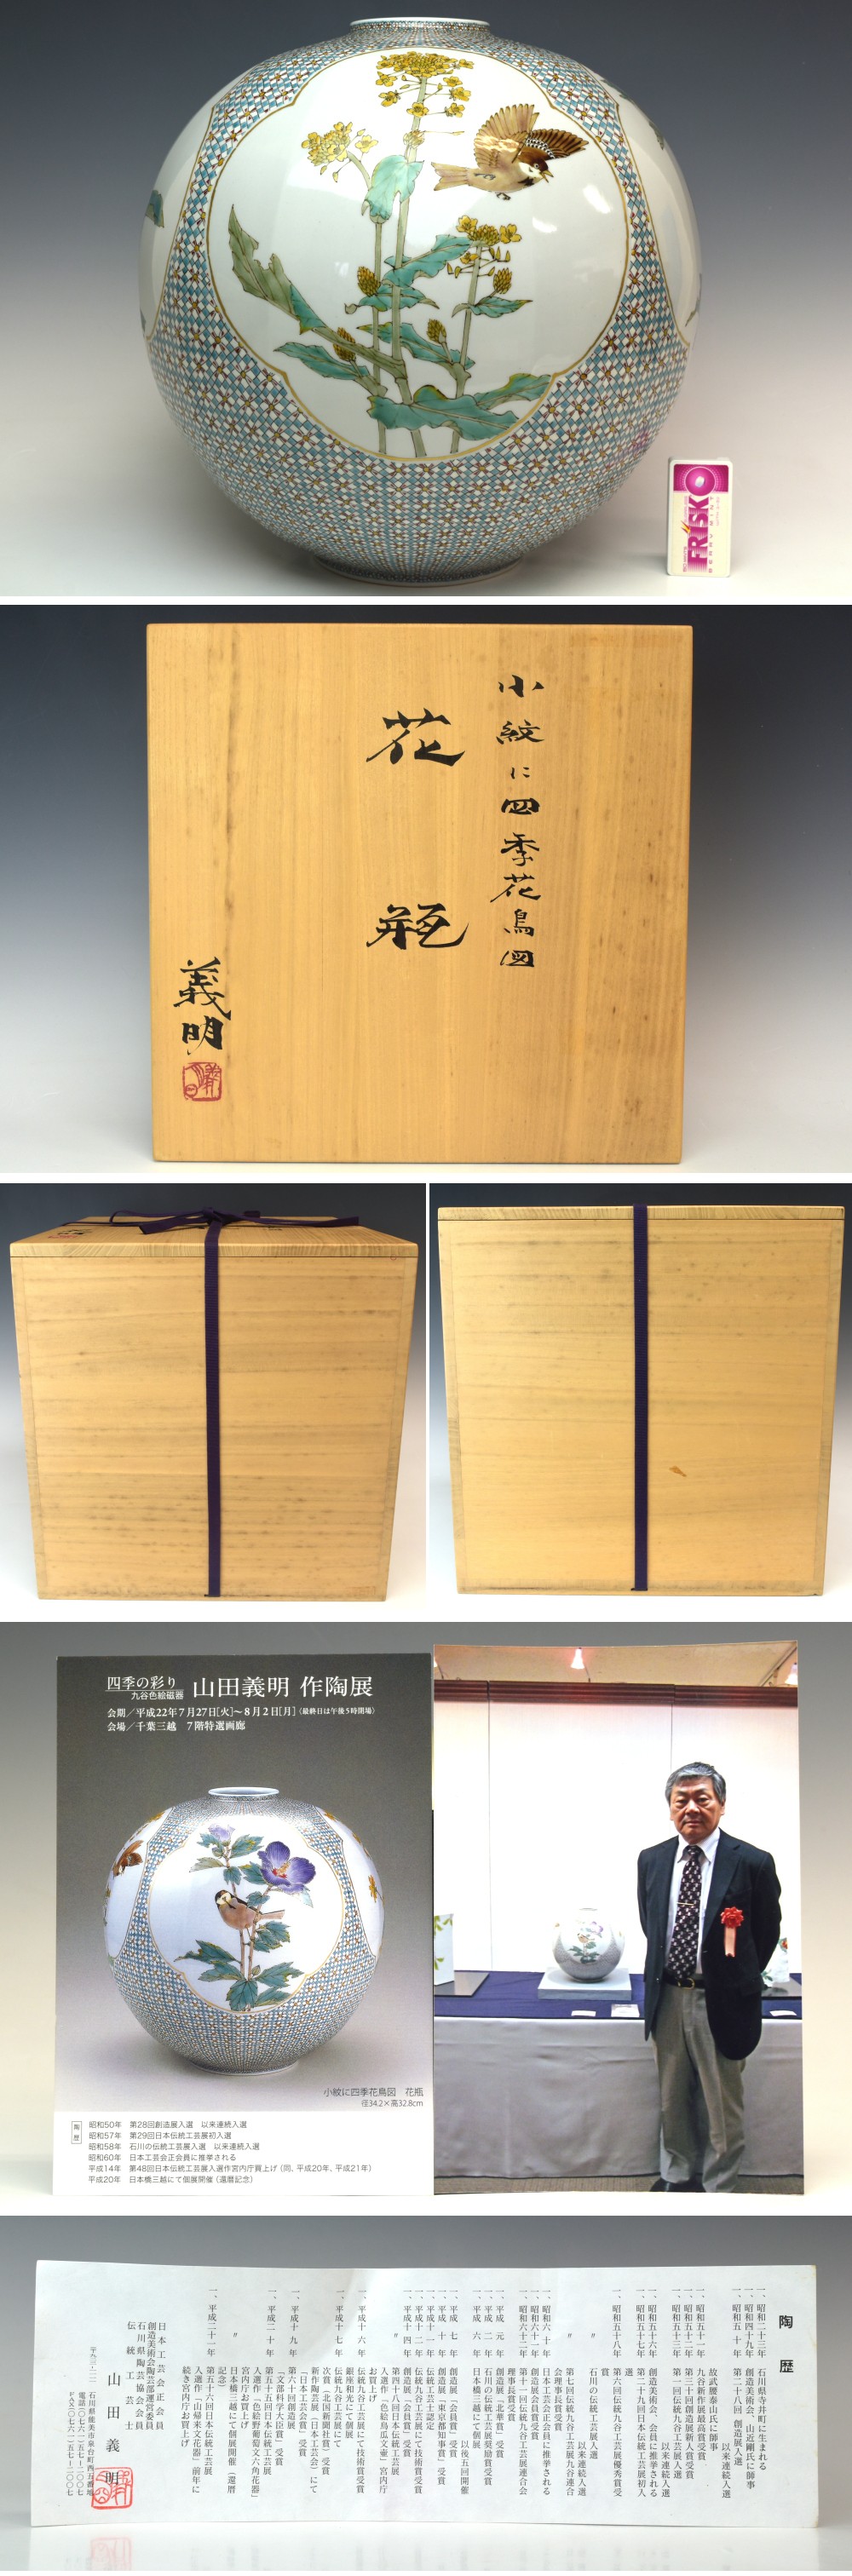 FRISK
小紋に四季花鳥図
花瓶
義明
四季の彩り
九谷色絵磁器
山田義明 作陶展
会期／平成22年7月27日[火]〜8月2日[月]〈最終日は午後5時閉場〉
会場／千葉三越 7階特選画廊
小紋に四季花鳥図 花瓶
径34.2×高32.8cm
陶歴
昭和50年 第28回創造展入選 以来連続入選
昭和57年 第29回日本伝統工芸展初入選
昭和58年 石川の伝統工芸展入選 以来連続入選
昭和60年 日本工芸会正会員に推挙される
平成14年 第48回日本伝統工芸展入選作宮内庁買上げ（同、平成20年、平成21年）
平成20年 日本橋三越にて個展開催（還暦記念）
陶歴
一、昭和二十三年 石川県寺井町に生まれる
一、昭和四十九年 創造美術会、山近剛氏に師事
一、昭和五十年 第二十八回 創造展入選
以来連続入選
故武腰泰山氏に師事
一、昭和五十一年 九谷新作展最高賞受賞
一、昭和五十二年 第三十回創造展新人賞受賞
一、昭和五十三年 第一回伝統九谷工芸展入選
以来連続入選
一、昭和五十六年 創造美術会、会員に推挙される
一、昭和五十七年 第二十九回日本伝統工芸展初入選
一、昭和五十八年 第六回伝統九谷工芸展優秀賞受賞
〃 石川の伝統工芸展入選
以来連続入選
〃 第七回伝統九谷工芸展九谷連合会理事長賞受賞
一、昭和六十年 日本工芸会正会員に推挙される
一、昭和六十一年 創造展会員賞受賞
一、昭和六十二年 第十一回伝統九谷工芸展連合会理事長賞受賞
一、平成元年 創造展「北華賞」受賞
一、平成二年 石川の伝統工芸展奨励賞受賞
一、平成六年 日本橋三越にて個展
以後五回開催
一、平成七年 創造展「会員賞」受賞
一、平成十年 創造展「東京都知事賞」受賞
一、平成十一年 伝統工芸士認定
一、平成十二年 伝統九谷工芸展にて技術賞受賞
一、平成十四年 創造展「会員賞」受賞
〃 第四十八回日本伝統工芸展入選作「色絵烏瓜文壷」宮内庁お買上げ
一、平成十六年 伝統九谷工芸展にて技術賞受賞
銀座和光にて個展
一、平成十七年 伝統九谷工芸展にて次賞（北国新聞社賞）受賞
新作陶芸展（日本工芸会）にて「日本工芸会賞」受賞
一、平成十九年 第六十回創造展「文部科学大臣賞」受賞
一、平成二十年 第五十五回日本伝統工芸展入選作「色絵野葡萄文六角花器」宮内庁お買上げ
〃 日本橋三越にて個展開催（還暦記念）
一、平成二十一年 第五十六回日本伝統工芸展入選作「山帰来文花器」前年に続き宮内庁お買上げ
日本工芸会正会員
創造美術会陶芸部運営委員
石川県陶芸協会会員
伝統工芸士
山田義明
石川県能美市泉台町西五番地